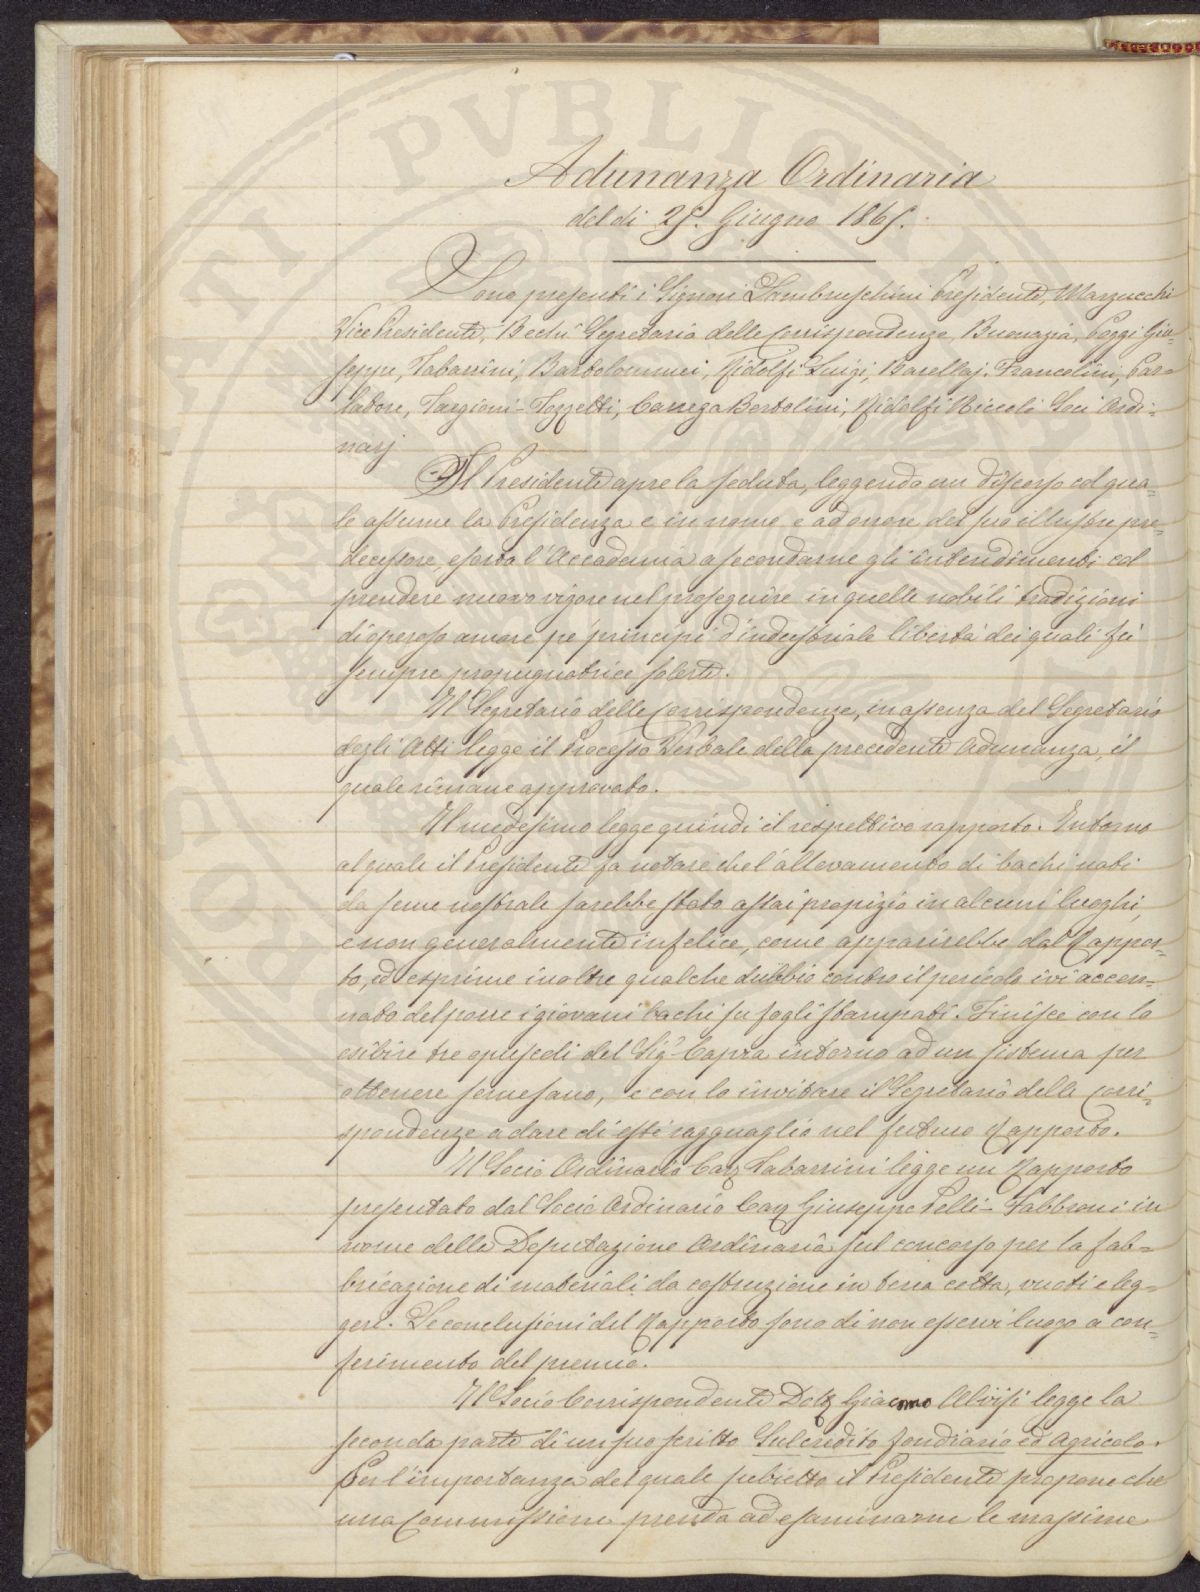 Adunanza Ordinaria
del di 25. Giugno 1865.
Sono presenti i Signori Lambruschini Presidente, Marzucchi
Vice Presidente, Bechi Segretario delle Corrispondenze, Buonazia, Poggi Giu-
seppe, Tabarrini, Bartolommei, Ridolfi Luigi, Barellaj, Francolini,
Targioni-Tozzetti, Carega Bertolini, Ridolfi Niccolò Soci Ordi-
narj
Il Presidente apre la seduta, leggendo un discorso col qua-
le assume la Presidenza e in nome e ad onore del suo illustre pre-
decessore, esorta l'Accademia a secondarne gli intendimenti col
prendere nuovo vigore nel proseguire in quelle nobili tradizioni
di operoso amore pe' principi d'industriale libertà dei quali fù
sempre propugnatrice solerte.
Il Segretario delle Corrispondenze, in assenza del Segretario
degli Atti legge il Processo Verbale della precedente Adunanza, il
quale rimane approvato.
Il medesimo legge quindi il respettivo rapporto. Intorno
al quale il Presidente fa notare che l'allevamento di bachi nati
da seme nostrale sarebbe stato assai propizio in alcuni luoghi,
e non generalmente infelice, come apparirebbe dal Rappor-
to, ed esprime inoltre qualche dubbio contro il pericolo ivi accen-
nato del porre i giovani bachi su fogli stampati. Finisce con lo
esibire tre opuscoli del Sigr. Capra intorno ad un sistema per
ottenere seme sano, e con lo invitare il Segretario delle Corri-
spondenze a dare di essi ragguaglio nel futuro Rapporto.
Il Socio Ordinario Cav Tabarrini legge un Rapporto
presentato dal Socio Ordinario Cav Giuseppe Pelli-Fabbroni in
nome della Deputazione Ordinaria sul concorso per la fab-
bricazione di materiali da costruzione in terra cotta, vuoti e leg-
geri. Le conclusioni del Rapporto sono di non esservi luogo a con-
ferimento del premio.
Il Socio Corrispondente Dott Giacomo Alvisi legge la
seconda parte di un suo scritto Sul credito fondiario ed Agricolo.
Per l'importanza del quale subietto il Presidente propone che
una Commissione prenda ad esaminarne le massime
PUBLICAE